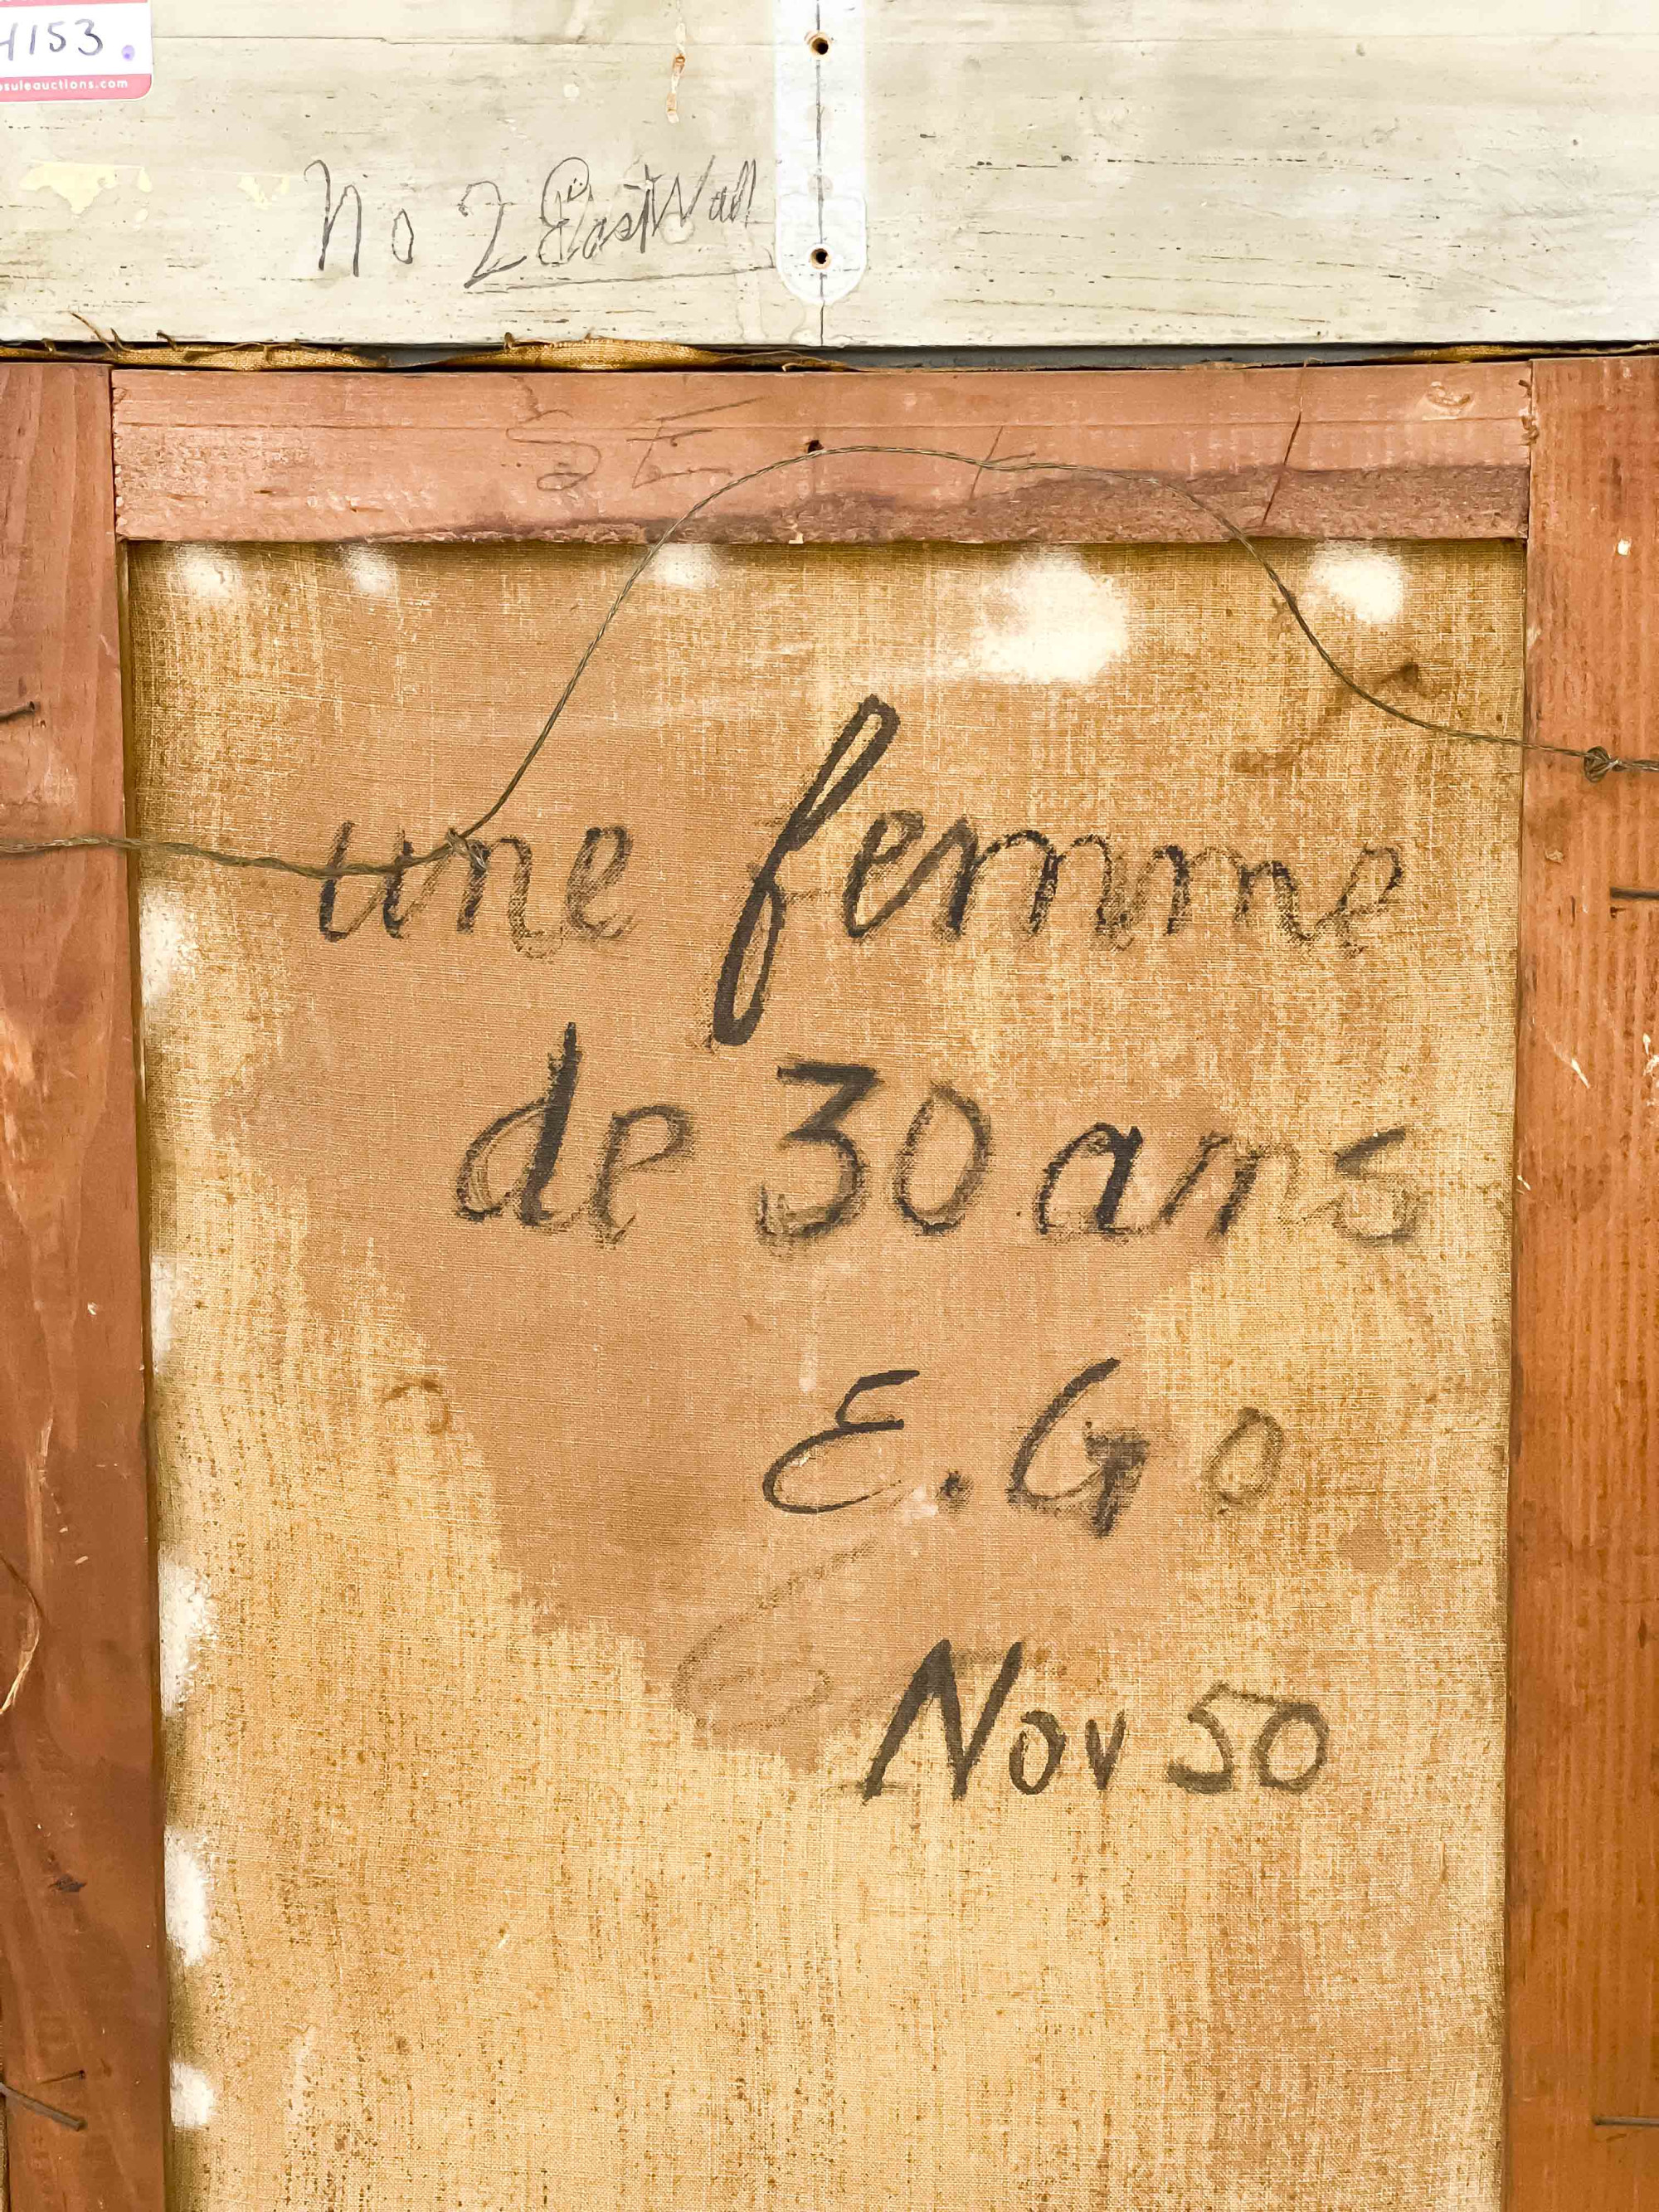 4153.
suleauctions.com
No 2 East Wall
une femme
de 30 ans
E. Go
Nov 50